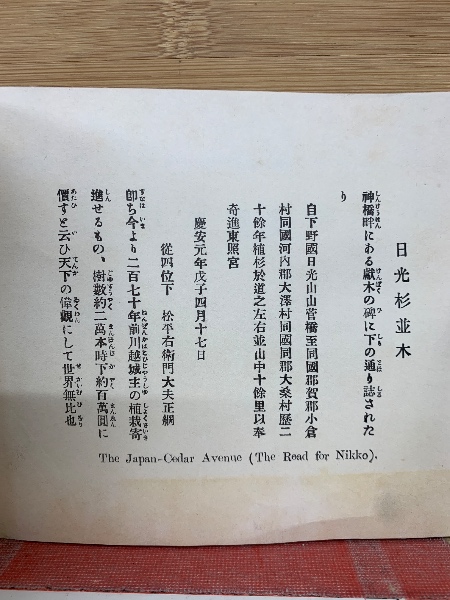 日光杉並木
神橋畔にある獻木の碑に下の通り誌された
り
自下野國日光山山菅橋至同國都賀郡小倉
村同國河内郡大澤村同國同郡大桑村歷二
十餘年植杉於道之左右並山中十餘里以奉
寄進東照宮
慶安元年戊子四月十七日
從四位下　松平右衛門大夫正綱
卽ち今より二百七十年前川越城主の植栽寄
進せるもの、樹數約二萬本時下約百萬圓に
價すと云ひ天下の偉觀にして世界無比也
The Japan-Cedar Avenue (The Road for Nikko).